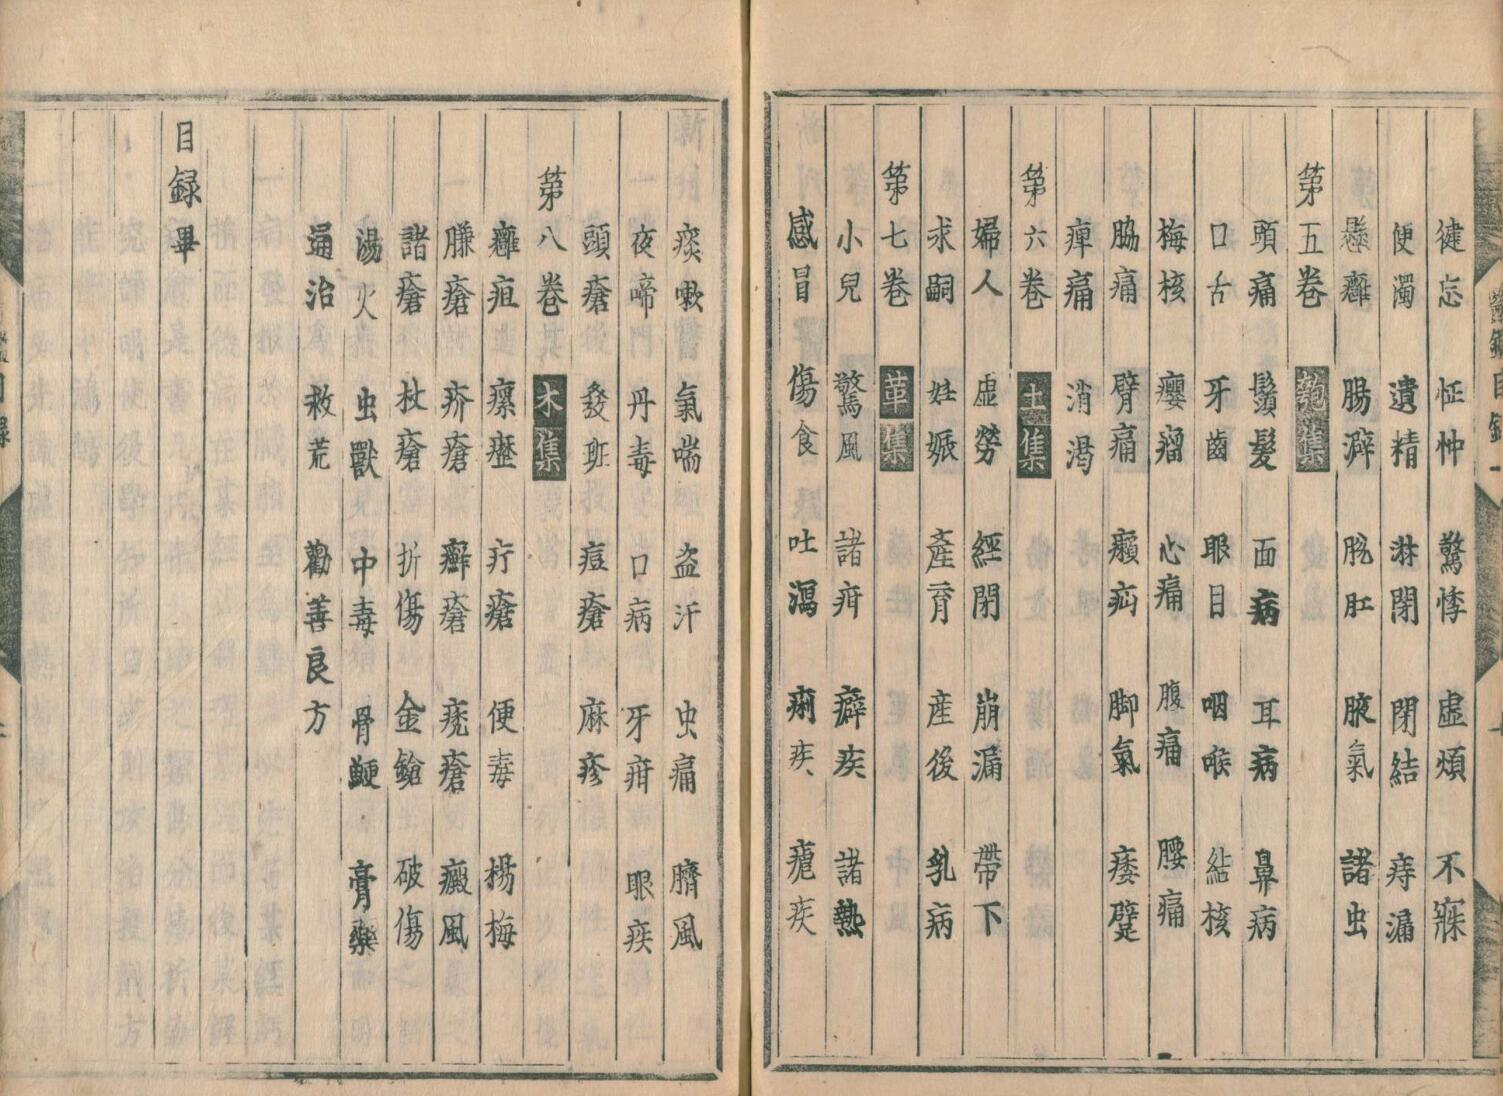 健忘 怔忡 驚悸 虛煩 不寐
便濁 遺精 淋閉 閉結 痔漏
懸癰 腸澼 脫肛 腋氣 諸虫
第五卷 匏集
頭痛 鬚髮 面病 耳病 鼻病
口舌 牙齒 眼目 咽喉 結核
梅核 癭瘤 心痛 腹痛 腰痛
脇痛 臂痛 㿗疝 脚氣 痿躄
痺痛 消渴
第六卷 土集
婦人 虛勞 經閉 崩漏 帶下
求嗣 姙娠 產育 產後 乳病
第七卷 革集
小兒 驚風 諸疳 癖疾 諸熱
感冒 傷食 吐瀉 痢疾 瘧疾
痰嗽 氣喘 盗汗 虫痛 臍風
夜啼 丹毒 口病 牙疳 眼疾
頭瘡 發班 痘瘡 麻疹
第八卷 木集
癰疽 瘰癧 疔瘡 便毒 楊梅
臁瘡 疥瘡 癬瘡 禿瘡 癜風
諸瘡 杖瘡 折傷 金鎗 破傷
湯火 虫獸 中毒 骨鯁 膏藥
通治 救荒 勸善良方
目録畢